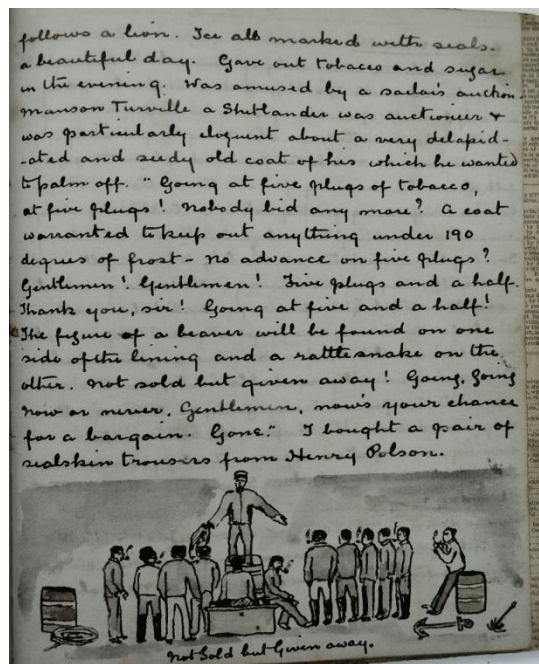 follows a lion. Ice all marked with seals.
a beautiful day. Gave out tobacco and sugar
in the evening. Was amused by a sailor's auction.
Manson Turville a Shetlander was auctioneer &
was particularly eloquent about a very delapid-
-ated and seedy old coat of his which he wanted
to palm off. "Going at five plugs of tobacco,
at five plugs! Nobody bid any more? A coat
warranted to keep out anything under 190
degrees of frost - no advance on five plugs?
Gentlemen! Gentlemen! Five plugs and a half.
Thank you, sir! Going at five and a half!
The figure of a beaver will be found on one
side of the lining and a rattlesnake on the
other. Not sold but given away! Going, Going
now or never, Gentlemen, now's your chance
for a bargain. Gone." I bought a pair of
sealskin trousers from Henry Polson.
Not Sold but Given away.